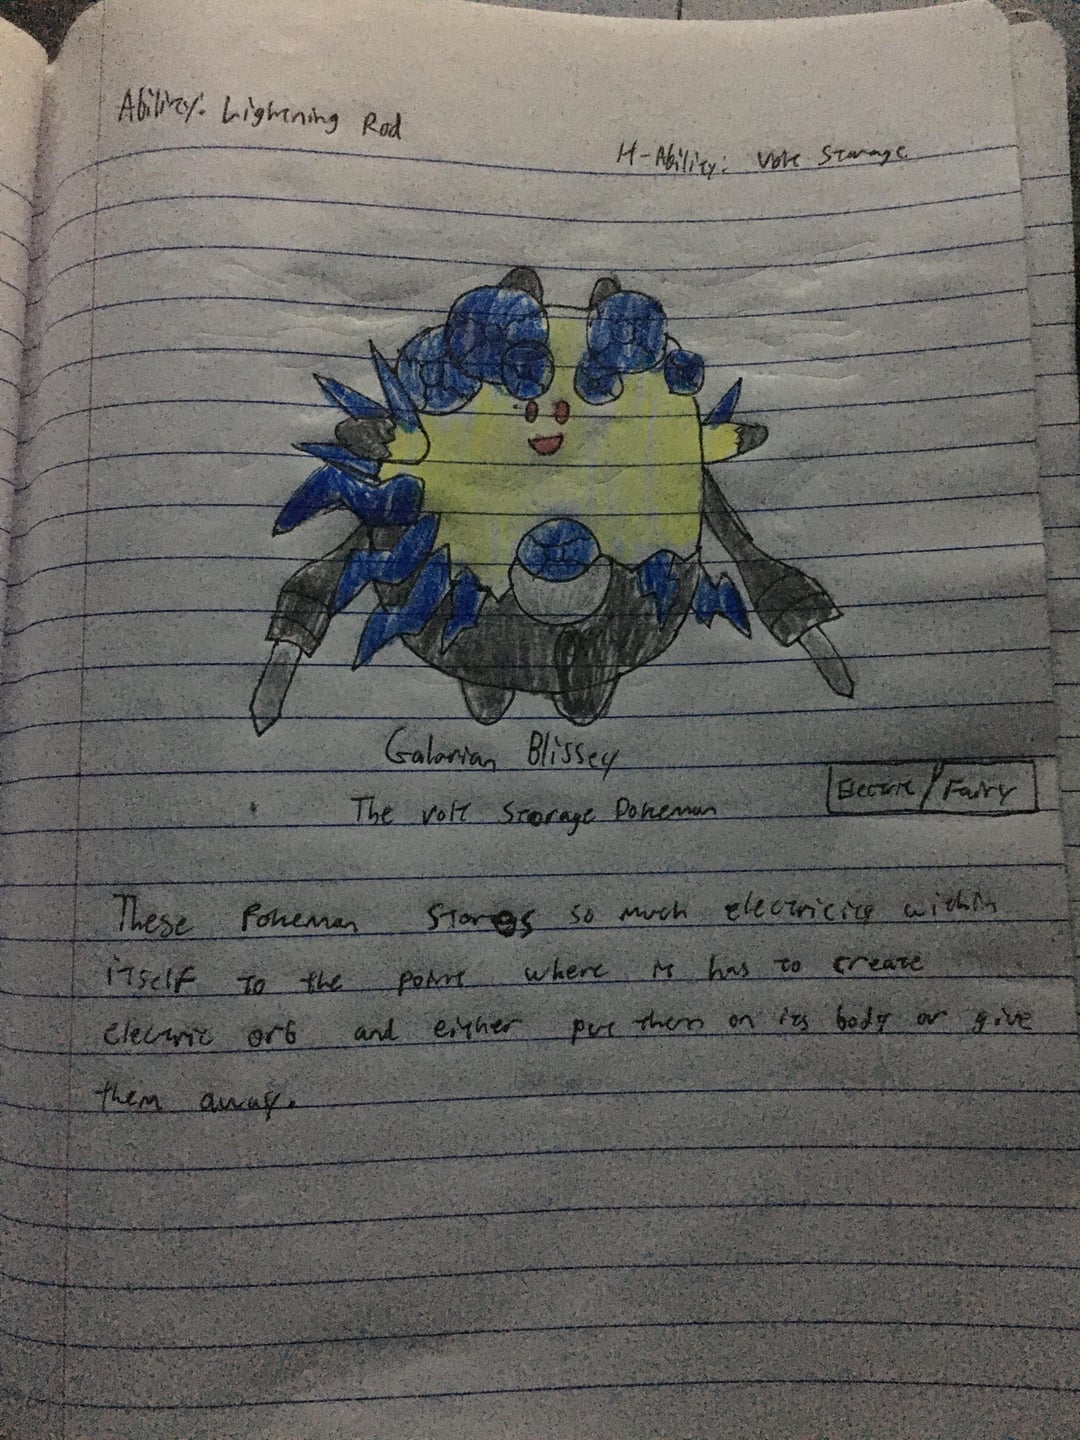 Ability: Lightning Rod
H-Ability: Volt Storage
Galarian Blissey
Electric/Fairy
The volt Storage Pokemon
These Pokemon Stores so much electricity within
itself to the point where it has to create
electric orb and either put them on its body or give
them away.